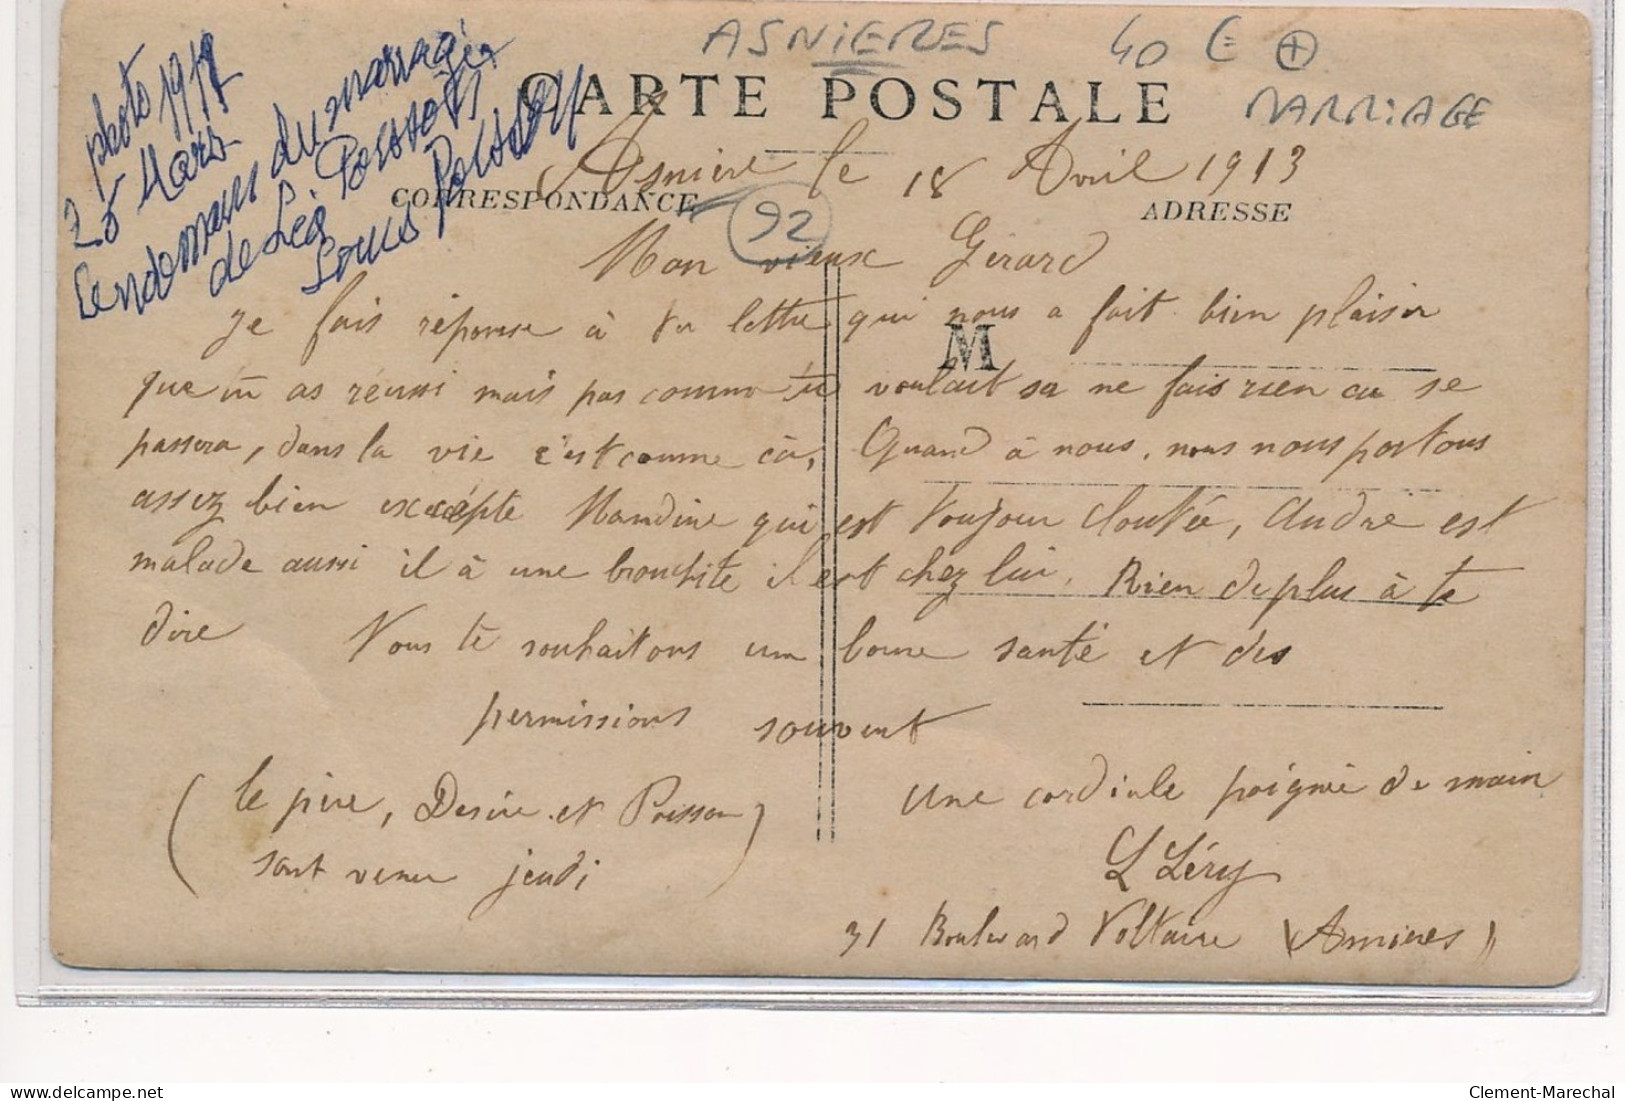 ASNIERES 40 € +
MARRIAGE
photo 1912
25 Mars
Lendemain du marriage
de Léa
Louis
CARTE POSTALE
CORRESPONDANCE
ADRESSE
92
M
Asnière le 18 Avril 1913
Mon vieux Gérard
Je fais réponse à ta lettre qui nous a fait bien plaisir
que tu as réussi mais pas comme tu voulait sa ne fais rien ca se
passera, dans la vie c'est comme ca, Quand à nous, nous nous portons
assez bien excepte Mandine qui est toujour cloutée, André est
malade aussi il à une bronchite il est chez lui. Rien de plus à te
dire Nous te souhaitons une bonne santé et des
permissions souvent
(le père, Desire et Poisson
sont venu jeudi)
une cordiale poigné de main
L Léry
31 Boulevard Voltaire (Asnieres)
delcampe.net
Clement-Marechal